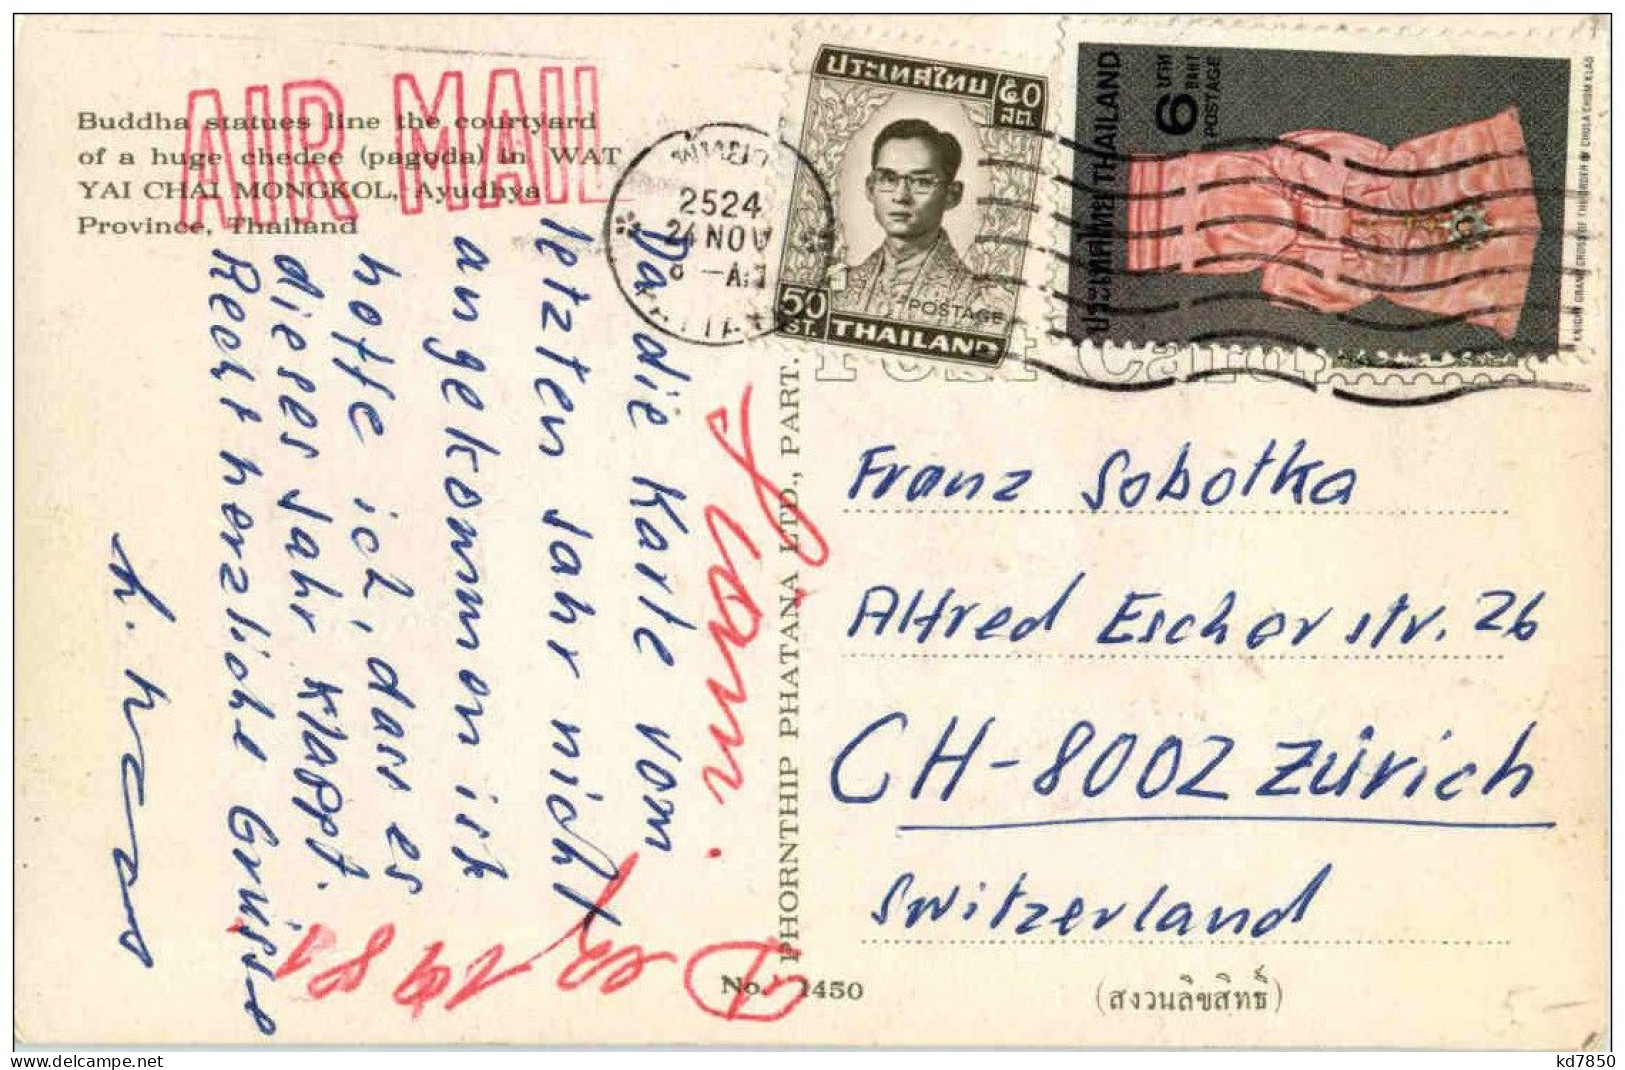 Buddha statues line the courtyard
of a huge chedee (pagoda) in WAT
YAI CHAI MONGKOL, Ayudhya
Province, Thailand
AIR MAIL
2524
24 NOV
ประเทศไทย
๕๐
สต.
50
ST.
POSTAGE
THAILAND
ประเทศไทย THAILAND
6
บาท
BAHT
POSTAGE
KNIGHT GRAND CROSS OF THE ORDER OF CHULA CHOM KLAO
Post Card
Da die Karte vom
letzten Jahr nicht
angekommen ist
hoffe ich, dass es
dieses Jahr klappt.
Recht herzliche Grüsse
H. Haas
1981
PHORNTHIP PHATANA LTD., PART.
Franz Sobotka
Alfred Escherstr. 26
CH-8002 Zürich
Switzerland
No. 1450
(สงวนลิขสิทธิ์)
kd7850